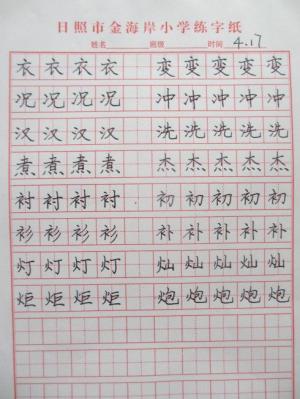 日照市金海岸小学练字纸
姓名 班级 时间 4.17
衣衣衣衣 变变变变变
况况况况 冲冲冲冲冲
汉汉汉汉 洗洗洗洗洗
煮煮煮煮 杰杰杰杰杰
衬衬衬衬 初初初初初
衫衫衫衫 补补补补补
灯灯灯灯 灿灿灿灿灿
炬炬炬炬 炮炮炮炮炮